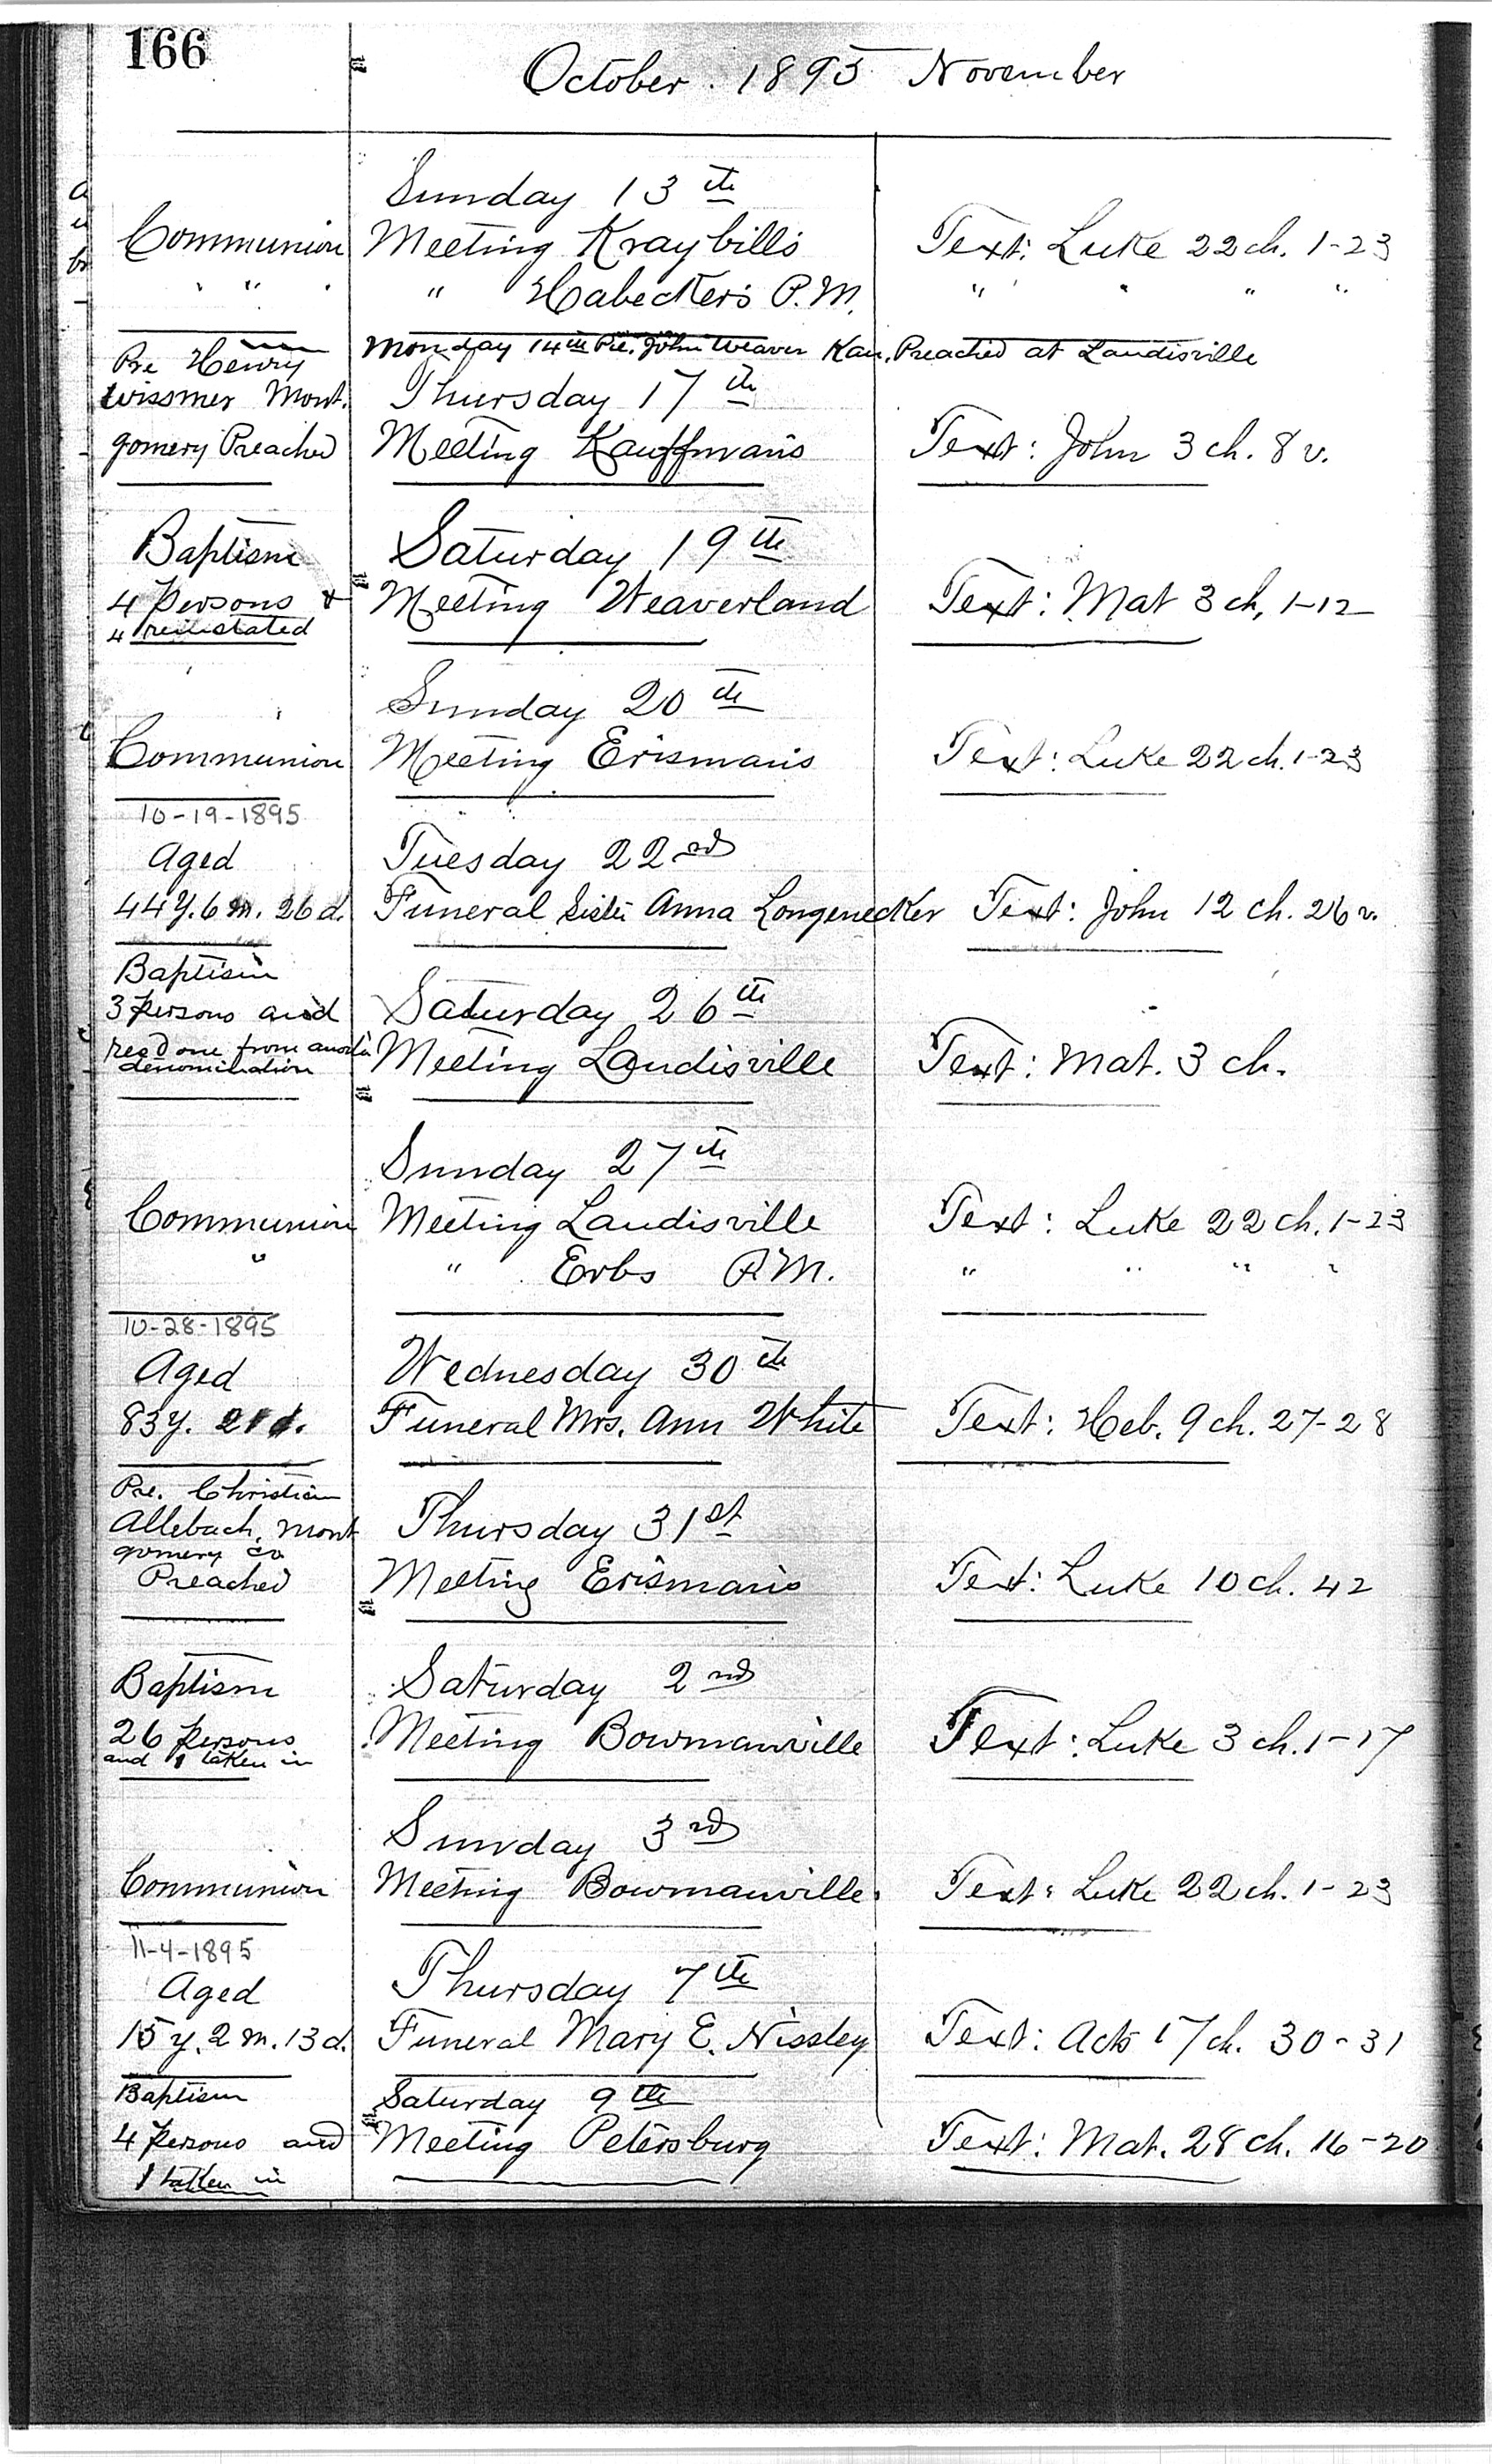 166
October . 1895 November
Sunday 13th
Communion Meeting Kraybill's Text: Luke 22 ch. 1-23
" " " " Habecker's P.M. " " " "
Monday 14th Pre. John Weaver Kan. Preached at Landisville
Pre Henry
Wissmer Mont. Thursday 17th
gomery Preached Meeting Kauffman's Text: John 3 ch. 8 v.
Baptism Saturday 19th
4 Persons & Meeting Weaverland Text: Mat 3 ch, 1-12
4 reinstated
Sunday 20th
Communion Meeting Erisman's Text: Luke 22 ch. 1-23
10-19-1895
Aged Tuesday 22nd
44 y. 6 m. 26 d. Funeral Sister Anna Longenecker Text: John 12 ch. 26 v.
Baptism
3 Persons and Saturday 26th
recd one from anoth Meeting Landisville Text: Mat. 3 ch.
denomination
Sunday 27th
Communion Meeting Landisville Text: Luke 22 ch. 1-23
" " Erbs P.M. " " " "
10-28-1895
Aged Wednesday 30th
83 y. 21 d. Funeral Mrs. Ann White Text: Heb. 9 ch. 27-28
Pre. Christian
Allebach, Mont Thursday 31st
gomery Co
Preached Meeting Erisman's Text: Luke 10 ch. 42
Baptism Saturday 2nd
26 Persons Meeting Bowmanville Text: Luke 3 ch. 1-17
and 1 taken in
Sunday 3rd
Communion Meeting Bowmanville. Text: Luke 22 ch. 1-23
11-4-1895
Aged Thursday 7th
15 y. 2 m. 13 d. Funeral Mary E. Nissley Text: Acts 17 ch. 30-31
Baptism Saturday 9th
4 Persons and Meeting Petersburg Text: Mat. 28 ch. 16-20
1 taken in